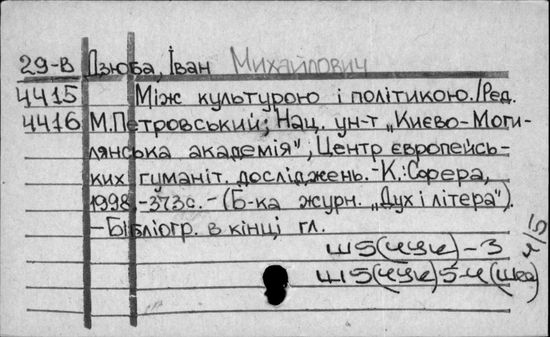 29-В Дзюба, Іван Михайлович
4415 Між культурою і політикою./Ред.
4416 М.Петровський; Нац. ун-т „Києво-Моги-
лянська академія"; Центр європейсь-
ких гуманіт. досліджень.-К.:Сфера,
1998.-373с.-(Б-ка журн. „Дух і літера").
-Бібліогр. в кінці гл.
Ш5(4Ук)-3
Ш5(4Ук)5-4
4/5